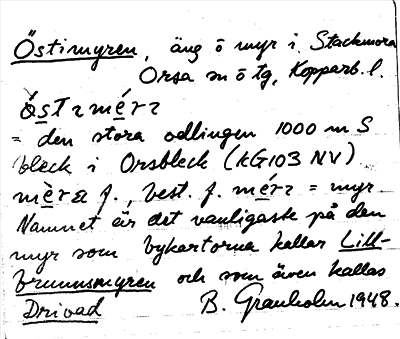 Östimyren, äng o myr i Stackmora
Orsa sn o tg, Kopparb. l.
östɩmérɩ
= den stora odlingen 1000 m S
bleck i Orsbleck (kG103 NV)
mèra f., best. f. mérɩ = myr
Namnet är det vanligaste på den
myr som bykartorna kallar Lill-
brunnsmyren och som även kallas
Drivad B. Granholm 1948.